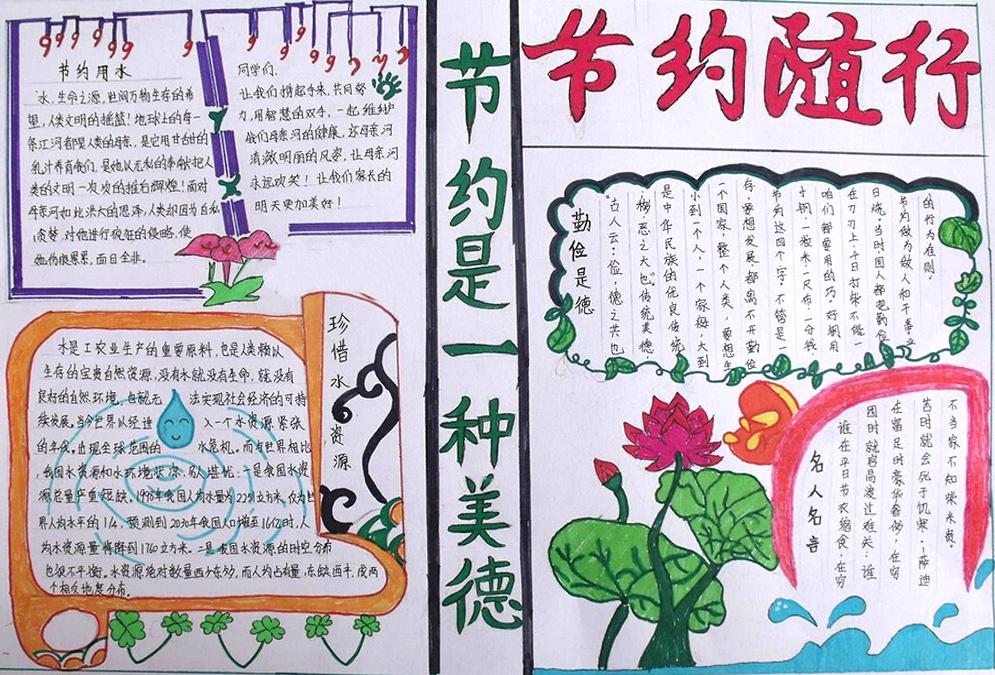 节约随行
节约是一种美德
节约用水
水，生命之源，世间万物生存的希
望，人类文明的摇篮！地球上的每一
条江河都是人类的母亲，是它用甘甜的
乳汁养育我们，是他以无私的奉献把人
类的文明一次次的推右辉煌！面对
母亲河如此洪大的恩泽，人类却因为自私
贪婪，对他进行疯狂的侵略，使
她伤痕累累，面目全非。
同学们，
让我们携起手来，共同努
力，用智慧的双手，一起维护
我们母亲河的健康，还母亲河
清澈明丽的风姿，让母亲河
永远欢笑！让我们家长的
明天更加美好！
珍惜水资源
水是工农业生产的重要原料，也是人类赖以
生存的宝贵自然资源，没有水就没有生命，就没有
良好的自然环境，也就无法实现社会经济的可持
续发展。当今世界以经进入一个水资源紧张
的年代。出现全球范围的水危机。而与世界相比
，我国水资源和水环境状深，劝堪忧，一是我国水资
源总量严重短缺。1998年我国人均水量为2251立方米，仅为世
界人均水平的1/4，预测到2030年我国人口增至16亿时，人
均水资源量将降到1760立方米。二是我国水资源的时空分布
也很不平衡。水资源绝对数量西少东多，而人均占有量，东缺西丰，成两
个相交地度分布。
勤俭是德
古人云：俭，德之共也
榜，恶之大也。传统美德，
是中华民族的优良传统，
小到一个人，一个家庭，大到
一个国家，整个人类，要想生
存，要想发展都离不开勤俭
节约这四个字。不管是一
十钢，一粒米，一尺布，一分钱
咱们都要用的巧。好钢用
在刀刃上，千日打柴不能一
日烧。当时，国人都把勤俭
节约做为做人和干事业
的行为在则。
名人名言
谁在平日节衣缩食，在穷
困时就容易渡过难关；谁
在富足时豪华奢侈，在穷
苦时就会死于饥寒。—萨迪
不当家不知柴米贵。